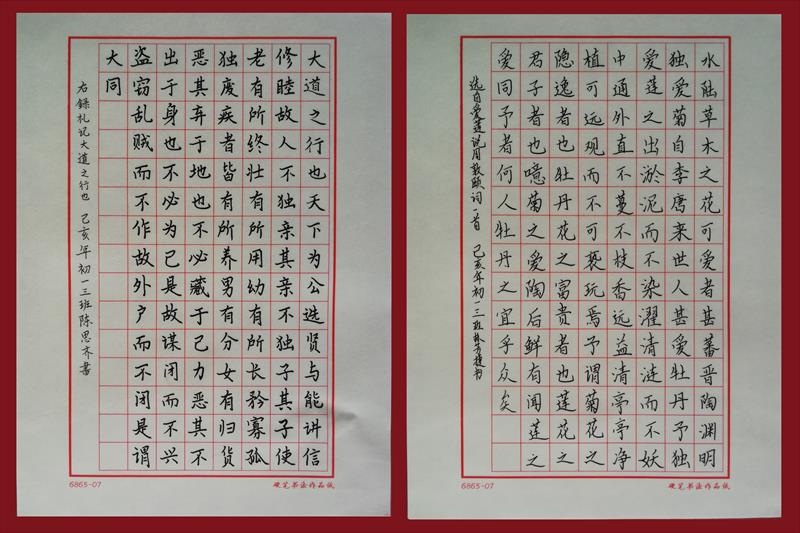 大道之行也天下为公选贤与能讲信
修睦故人不独亲其亲不独子其子使
老有所终壮有所用幼有所长矜寡孤
独废疾者皆有所养男有分女有归货
恶其弃于地也不必藏于己力恶其不
出于身也不必为己是故谋闭而不兴
盗窃乱贼而不作故外户而不闭是谓
大同
右錄札记大道之行也 己亥年初一三班陈思齐書
6865-07 硬笔书法作品纸
水陆草木之花可爱者甚蕃晋陶渊明
独爱菊自李唐来世人甚爱牡丹予独
爱莲之出淤泥而不染濯清涟而不妖
中通外直不蔓不枝香远益清亭亭净
植可远观而不可亵玩焉予谓菊花之
隐逸者也牡丹花之富贵者也莲花之
君子者也噫菊之爱陶后鲜有闻莲之
爱同予者何人牡丹之宜乎众矣
选自爱莲说周敦颐词一首 己亥年初一三班
6865-07 硬笔书法作品纸